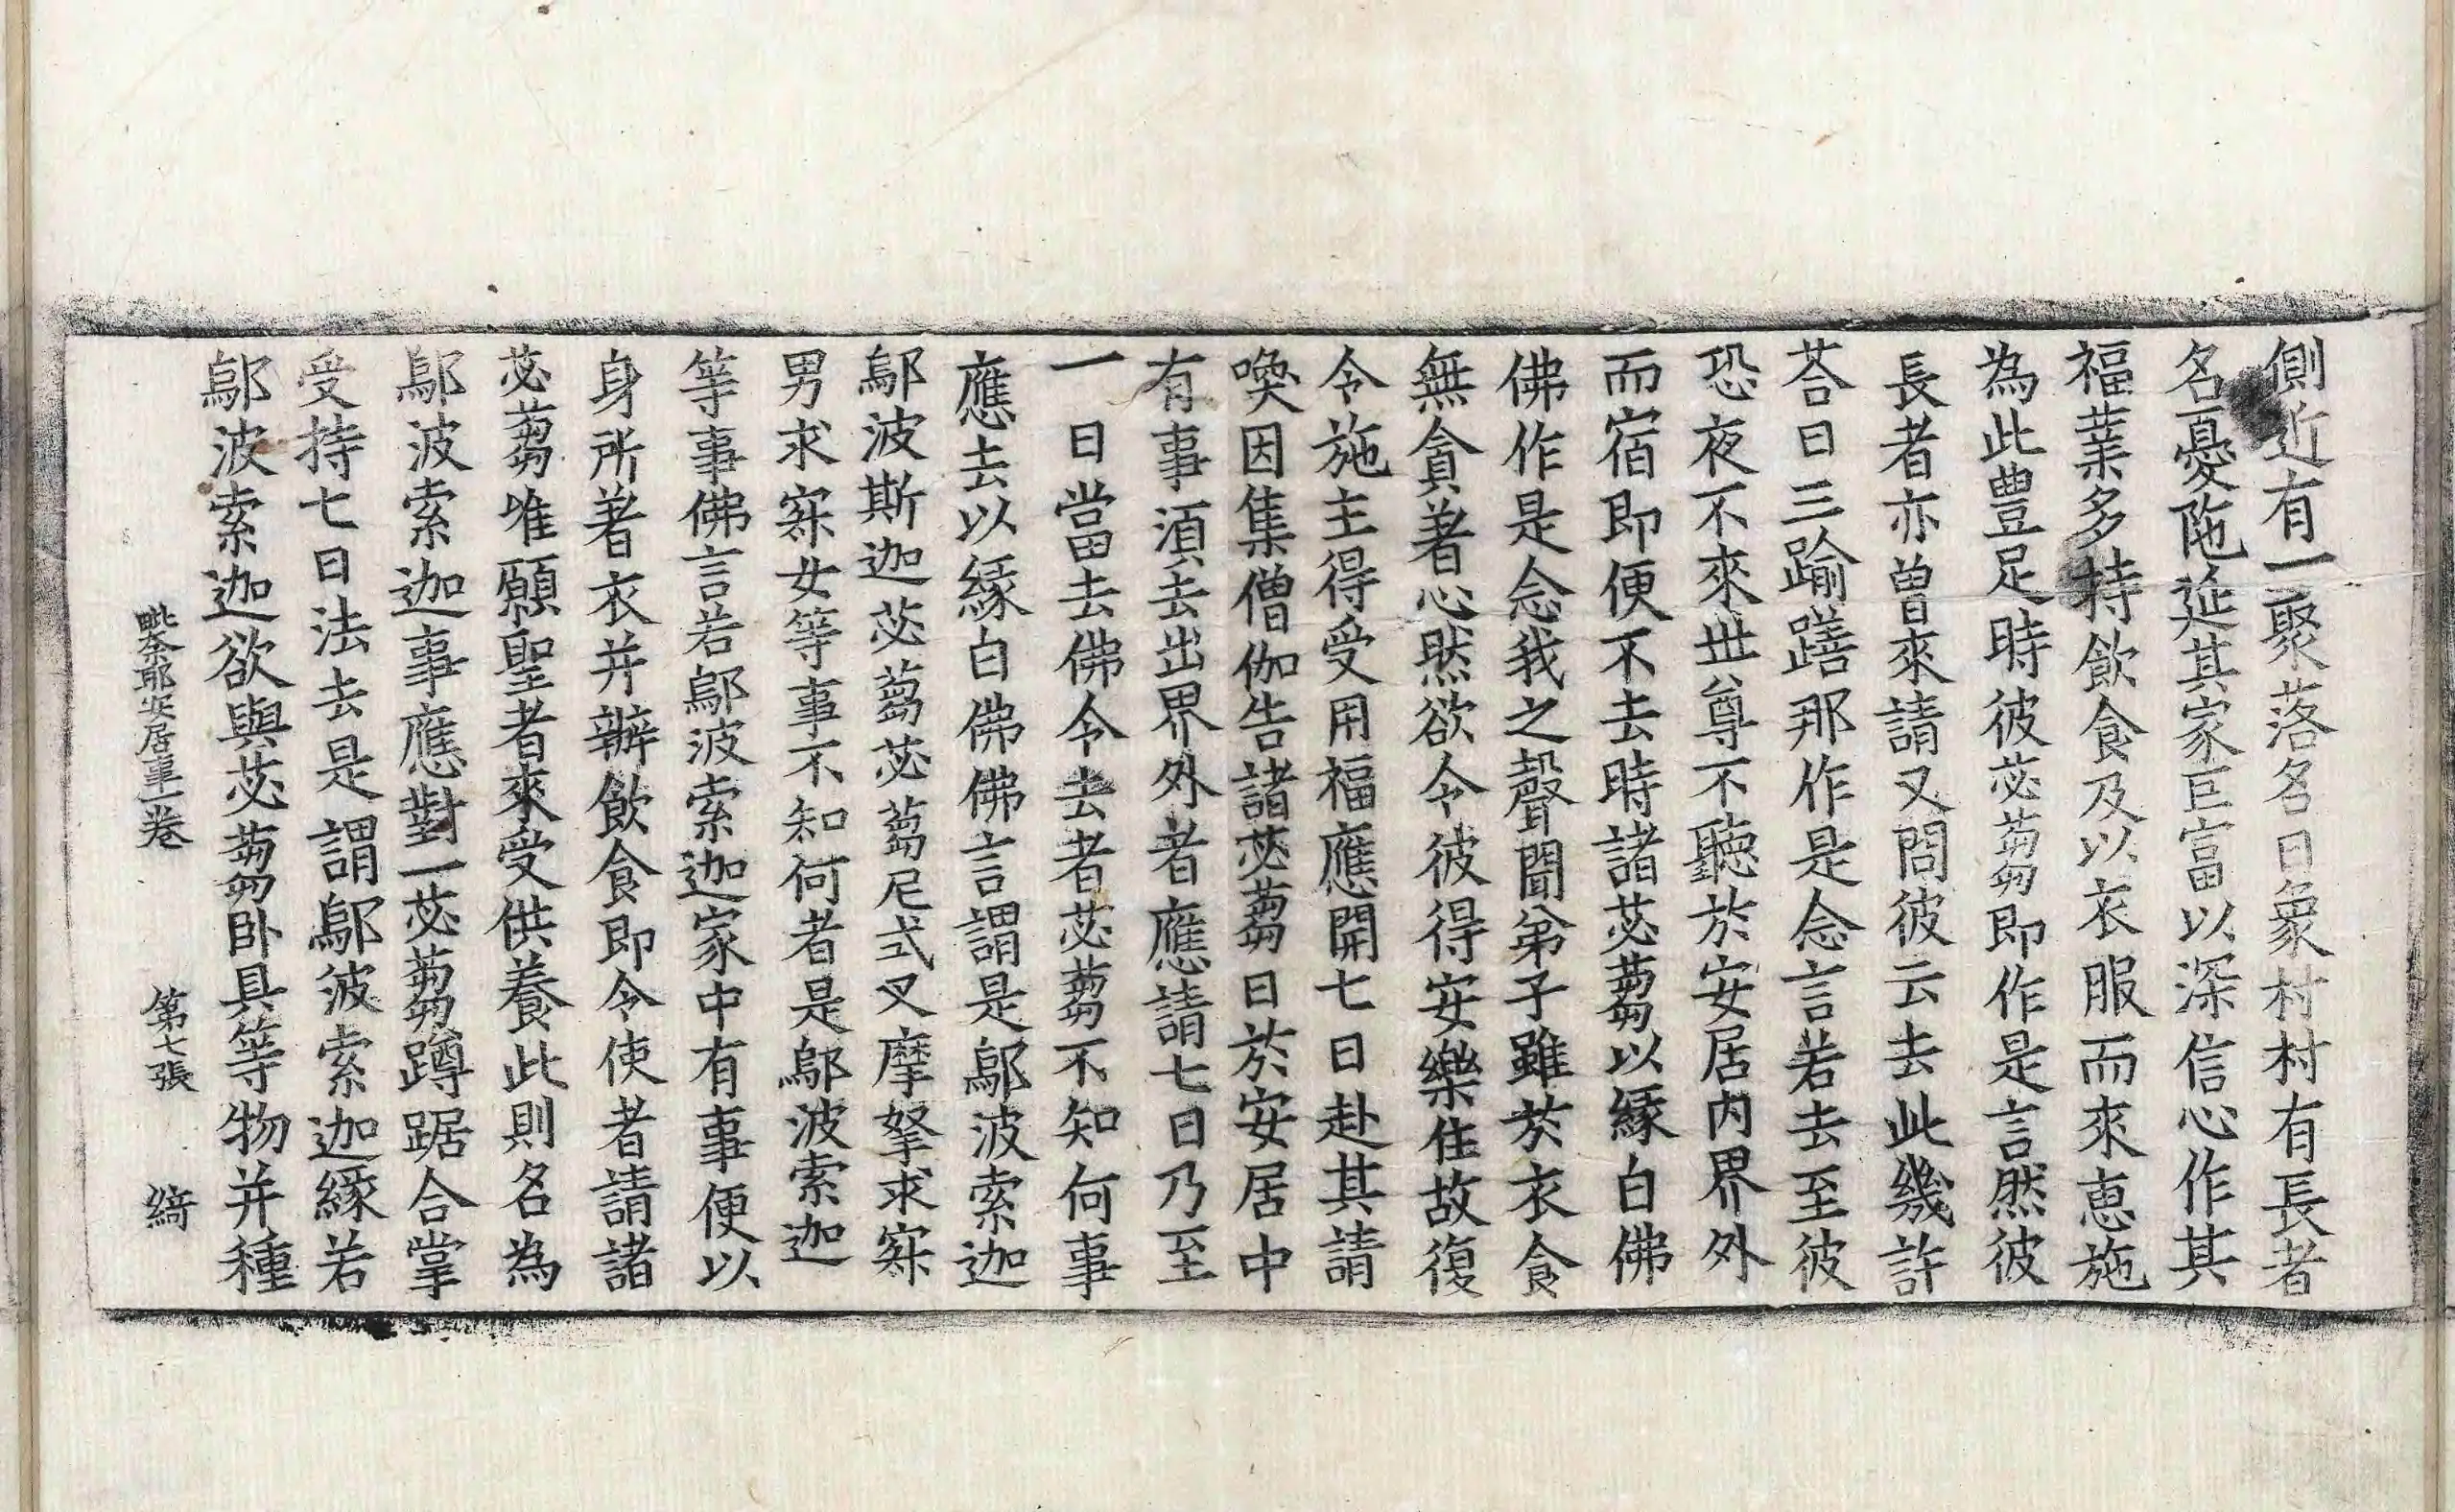 側近有一聚落名曰象村村有長者
名憂陁延其家巨富以深信心作其
福業多持飲食及以衣服而來惠施
為此豊足時彼苾蒭即作是言然彼
長者亦曽來請又問彼云去此幾許
荅曰三踰繕那作是念言若去至彼
恐夜不來世尊不聽於安居内界外
而宿即便不去時諸苾蒭以縁白佛
佛作是念我之聲聞弟子雖於衣食
無貪著心然欲令彼得安樂住故復
令施主得受用福應開七日赴其請
喚因集僧伽告諸苾蒭曰於安居中
有事湏去出界外者應請七日乃至
一日當去佛令去者苾蒭不知何事
應去以縁白佛佛言謂是鄔波索迦
鄔波斯迦苾蒭苾蒭尼式叉摩拏求寂
男求寂女等事不知何者是鄔波索迦
等事佛言若鄔波索迦家中有事便以
身所著衣并辦飲食即令使者請諸
苾蒭唯願聖者來受供養此則名為
鄔波索迦事應對一苾蒭蹲踞合掌
受持七日法去是謂鄔波索迦縁若
鄔波索迦欲與苾蒭卧具等物并種
毗奈耶安居事一卷　第七張　綺